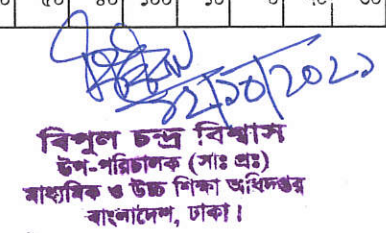 ১২/১০/2021
বিপুল চন্দ্র বিশ্বাস
উপ-পরিচালক (সাঃ প্রঃ)
মাধ্যমিক ও উচ্চ শিক্ষা অধিদপ্তর
বাংলাদেশ, ঢাকা।